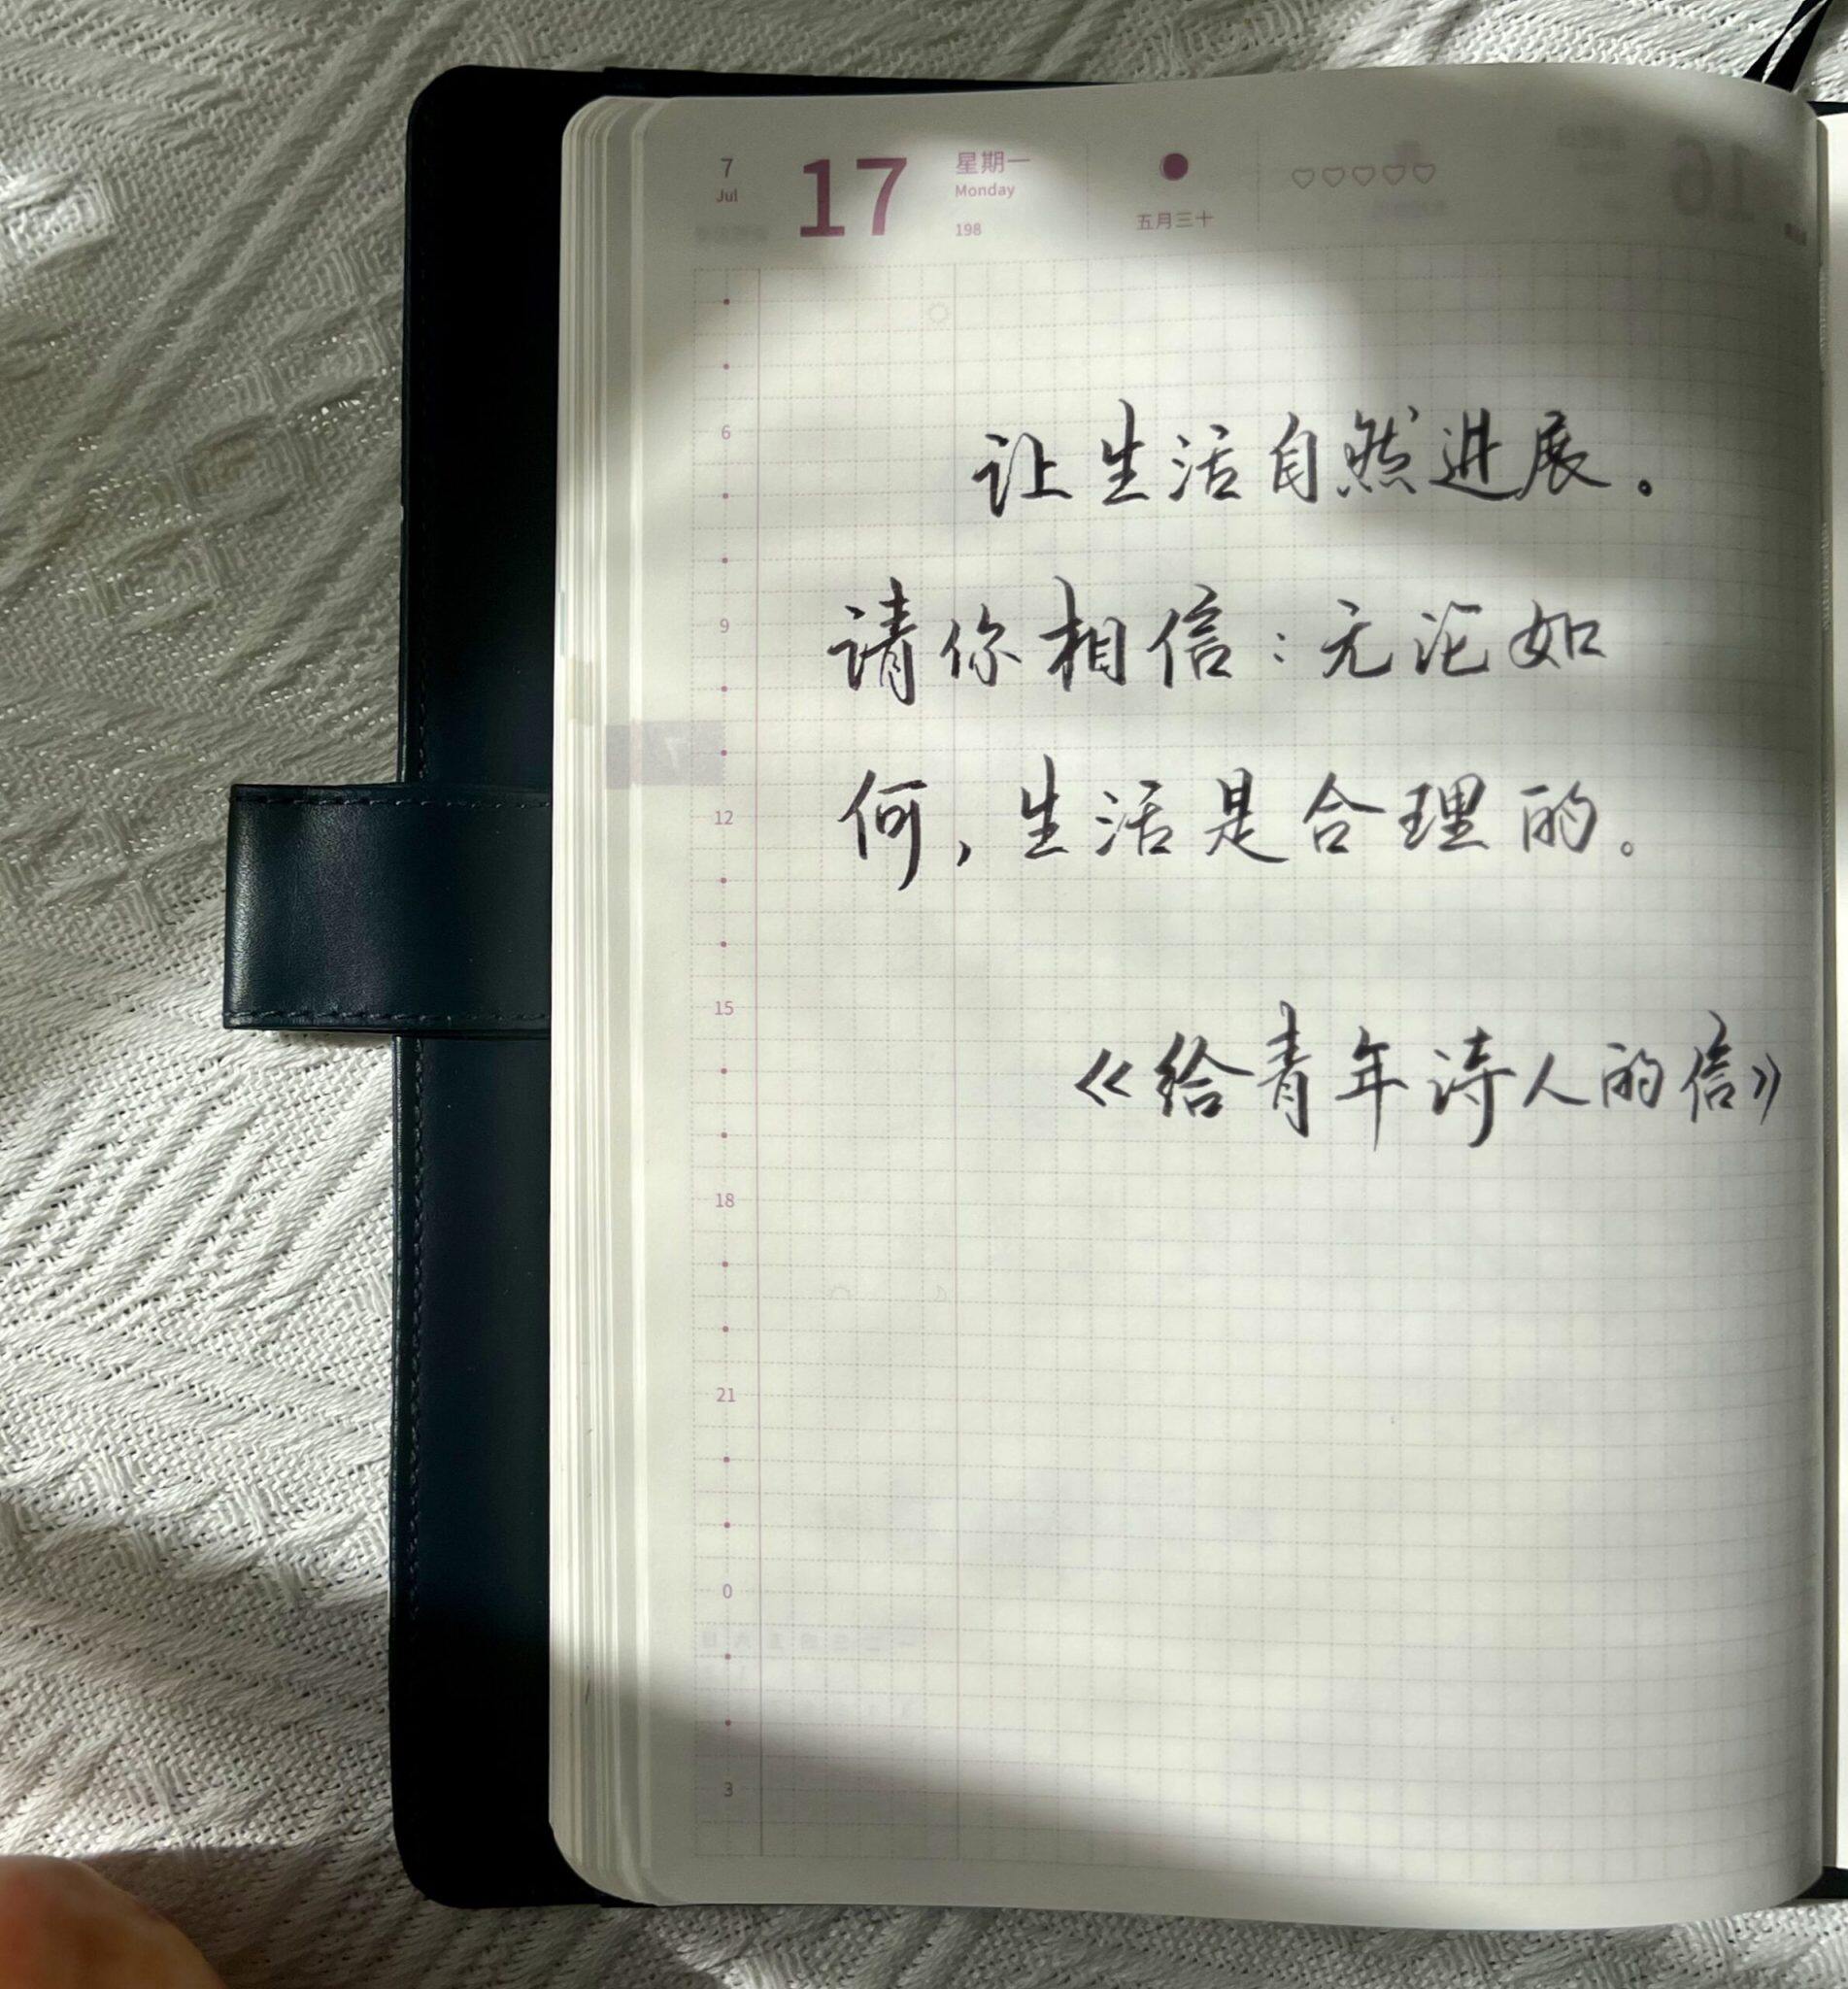 7
Jul
17
星期一
Monday
198
五月三十
6
让生活自然进展。
9
请你相信：无论如
何，生活是合理的。
12
15
《给青年诗人的信》
18
21
0
3